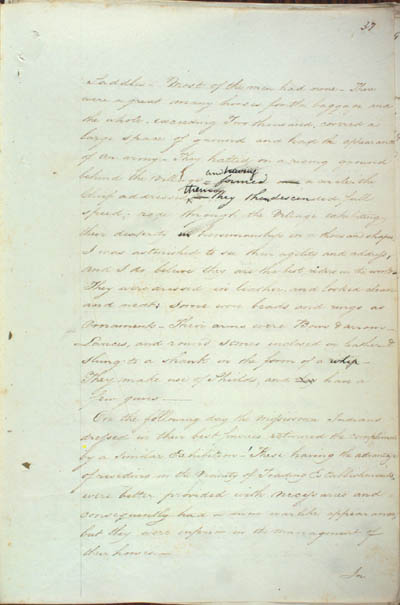 37
Saddles – Most of the men had none – There
were a great many horses for the baggage and
the whole, exceeding Two thousand, covered a
large space of ground and had the appearance
of an army – They halted on a rising ground
behind the Village and having
formed – a circle the
Chief addressed them, they then descended full
speed – rode through the Village exhibiting
their dexterity in horsemanship in a thousand shapes
I was astonished to see their agility and address,
and I do believe they are the best riders in the world –
They were dressed in leather, and looked clean
and neat; Some wore beads and rings as
Ornaments – Their arms were Bows & arrows
Lances, and round stones inclosed in leather &
Slung to a shank in the form of a whip –
They make use of Shields, and have a
few guns –
On the following day the Missisouri Indians
dressed in their best fineries returned the compliment
by a Similar Exhibition – These having the advantage
of residing in the Vicinity of Trading Establishments
were better provided with necessaries and
consequently had a more warlike appearance,
but they were inferior in the management of
their horses –
In